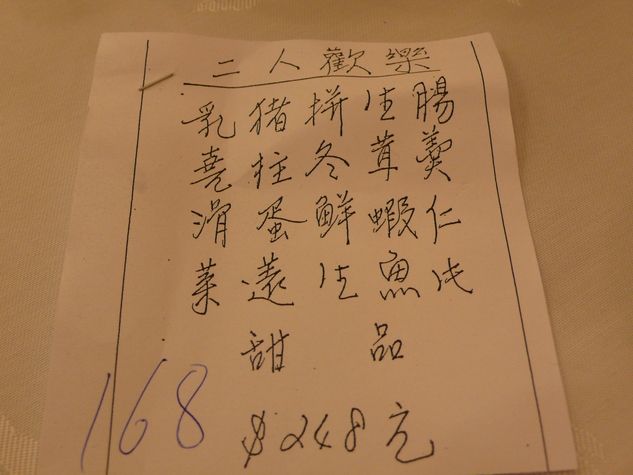 二人歡樂
乳猪拼生腸
堯柱冬茸羹
滑蛋鮮蝦仁
菜薳生魚片
甜品
168
$248元